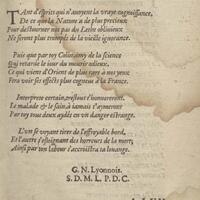 TAnt d'esprits qui n'auoyent la vraye cognoissance,
De ce que la Nature a de plus precieux
Pour destourner nos pas du Lethe obliuieux
Ne seront plus trompés de la vieille ignorance.
Puis que par toy Colin amy de la science
Qui retarde le iour du mourir odieux,
Ce qui vient d'Orient de plus rare à nos yeux
Fera voir ses effects plus cogneus à la France.
Interprete certain, tes honnoureront
Le malade & le sain, & iamais n'aymeront
Par toy tous deux aydés en vn danger estrange.
L'vn se voyant tirer de l'effroyable bord,
Et l'autre s'esloignant des horreurs de la mort,
Ainsi par ton labeur t'accroistra ta louange.
G. N. Lyonnois.
S. D. M. L. P. D. C.